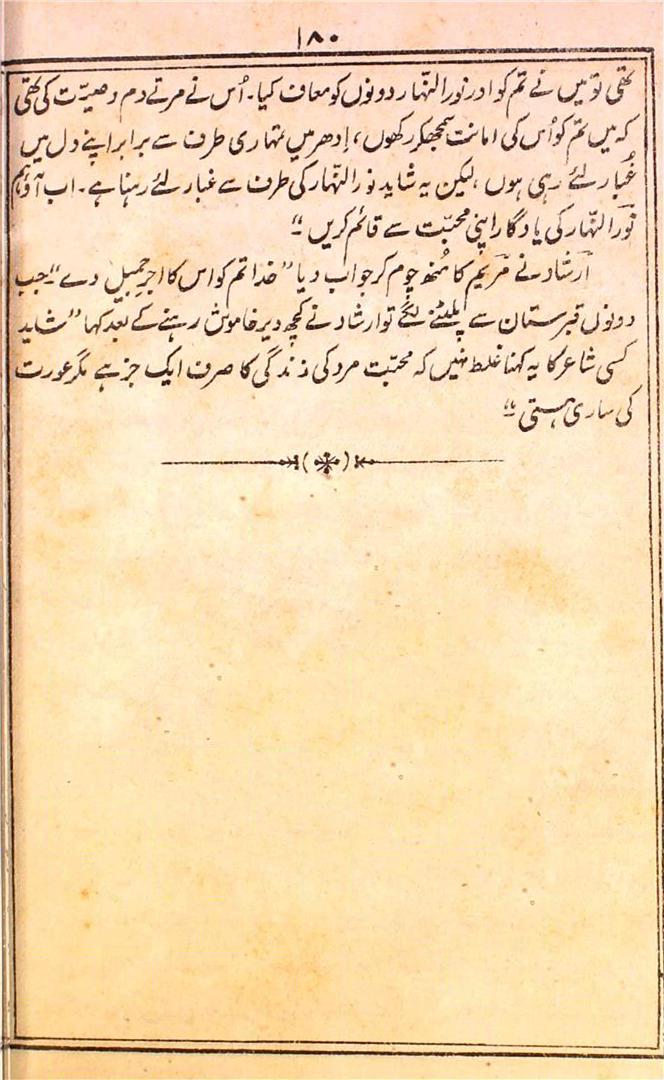 ۱۸۰
تھی تو میں نے تم کو اور نورالنّہار دونوں کو معاف کیا۔ اُس نے مرتے دم وصیّت کی تھی
کہ میں تم کو اُس کی امانت سمجھکر رکھوں، اِدھر میں تمہاری طرف سے برابر اپنے دل میں
غُبار لئے رہی ہوں، لیکن یہ شاید نورالنّہار کی طرف سے غبار لئے رہنا ہے۔ اب آؤ ہم
نورالنّہار کی یادگار اپنی محبّت سے قائم کریں ۔"
ارشاد نے مریم کا مُنھ چوم کر جواب دیا "خدا تم کو اس کا اجرِ جمیل دے" جب
دونوں قبرستان سے پلٹنے لگے تو ارشاد نے کچھ دیر خاموش رہنے کے بعد کہا "شاید
کسی شاعر کا یہ کہنا غلط نہیں کہ محبّت مرد کی زندگی کا صرف ایک جز ہے مگر عورت
کی ساری ہستی ۔"